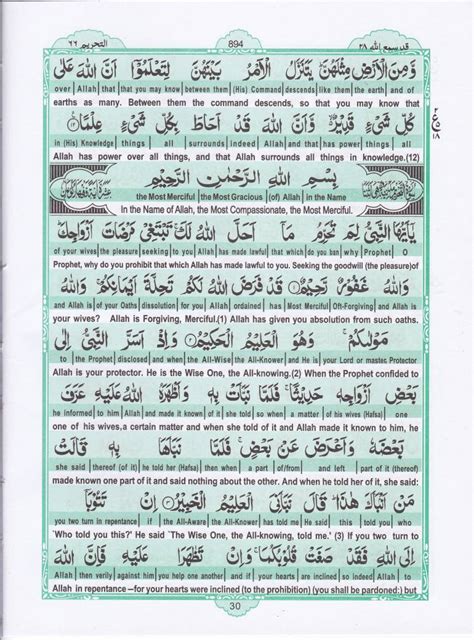 قد سمع الله ٢٨ 894 التحريم ٦٦
وَّمِنَ الْاَرْضِ مِثْلَهُنَّ ؕ يَتَنَزَّلُ الْاَمْرُ بَيْنَهُنَّ لِتَعْلَمُوْٓا اَنَّ اللّٰهَ عَلٰى
over | Allah | that | that you may know | between them | (His) Command | descends | like them | the earth | and of
earths as many. Between them the command descends, so that you may know that
كُلِّ شَىْءٍ قَدِيْرٌ ۙ وَّاَنَّ اللّٰهَ قَدْ اَحَاطَ بِكُلِّ شَىْءٍ عِلْمًا ﴿١٢﴾
in (His) Knowledge | things | all | surrounds | indeed | Allah | and that | has power | things | all
Allah has power over all things, and that Allah surrounds all things in knowledge.(12)
بِسْمِ اللّٰهِ الرَّحْمٰنِ الرَّحِيْمِ
the Most Merciful | the Most Gracious | (of) Allah | in the Name
In the Name of Allah, the Most Compassionate, the Most Merciful.
يٰۤاَيُّهَا النَّبِىُّ لِمَ تُحَرِّمُ مَاۤ اَحَلَّ اللّٰهُ لَكَ ۚ تَبْتَغِىْ مَرْضَاتَ اَزْوَاجِكَ ؕ
of your wives | the pleasure | seeking | to you | Allah | has made lawful | that which | do you ban | why | Prophet | O
Prophet, why do you prohibit that which Allah has made lawful to you. Seeking the goodwill (the pleasure)of
وَاللّٰهُ غَفُوْرٌ رَّحِيْمٌ ﴿١﴾ قَدْ فَرَضَ اللّٰهُ لَكُمْ تَحِلَّةَ اَيْمَانِكُمْ ۚ وَاللّٰهُ
and Allah is | of your Oaths | dissolution | for you | Allah | ordained | has | Most Merciful | Oft-Forgiving | and Allah is
your wives? Allah is Forgiving, Merciful.(1) Allah has given you absolution from such oaths.
مَوْلٰىكُمْ ۚ وَهُوَ الْعَلِيْمُ الْحَكِيْمُ ﴿٢﴾ وَاِذْ اَسَرَّ النَّبِىُّ اِلٰى
to | the Prophet | disclosed | and when | the All-Wise | the All-Knower | and He is | your Lord or master, Protector
Allah is your protector. He is the Wise One, the All-knowing.(2) When the Prophet confided to
بَعْضِ اَزْوَاجِهٖ حَدِيْثًا ۚ فَلَمَّا نَبَّاَتْ بِهٖ وَاَظْهَرَهُ اللّٰهُ عَلَيْهِ عَرَّفَ
he informed | to him | Allah | and made it known | of it | she told | so when | a matter | of his wives (Hafsa) | one
one of his wives,a certain matter and when she told of it, and Allah made it known to him, he
بَعْضَهٗ وَاَعْرَضَ عَنْۢ بَعْضٍ ۚ فَلَمَّا نَبَّاَهَا بِهٖ قَالَتْ
she said | thereof (of it) | he told her (Hafsa) | then when | a part | of/from | and left | part of it (thereof)
made known one part of it and said nothing about the other. And when he told her of it, she said
مَنْ اَنْۢبَاَكَ هٰذَا ؕ قَالَ نَبَّاَنِىَ الْعَلِيْمُ الْخَبِيْرُ ﴿٣﴾ اِنْ تَتُوْبَاۤ
you two turn in repentance | if | the All-Aware | the All-Knower | has told me | He said | this | told you | who
'Who told you this?' He said 'The Wise One, the All-knowing, told me.' (3) If you two turn to
اِلَى اللّٰهِ فَقَدْ صَغَتْ قُلُوْبُكُمَا ۚ وَاِنْ تَظٰهَرَا عَلَيْهِ فَاِنَّ اللّٰهَ
Allah | then verily | against him | you help one another | and if | your hearts | are inclined | so indeed | Allah | to
Allah in repentance —for your hearts were inclined (to the prohibition) (you shall be pardoned:) but
30